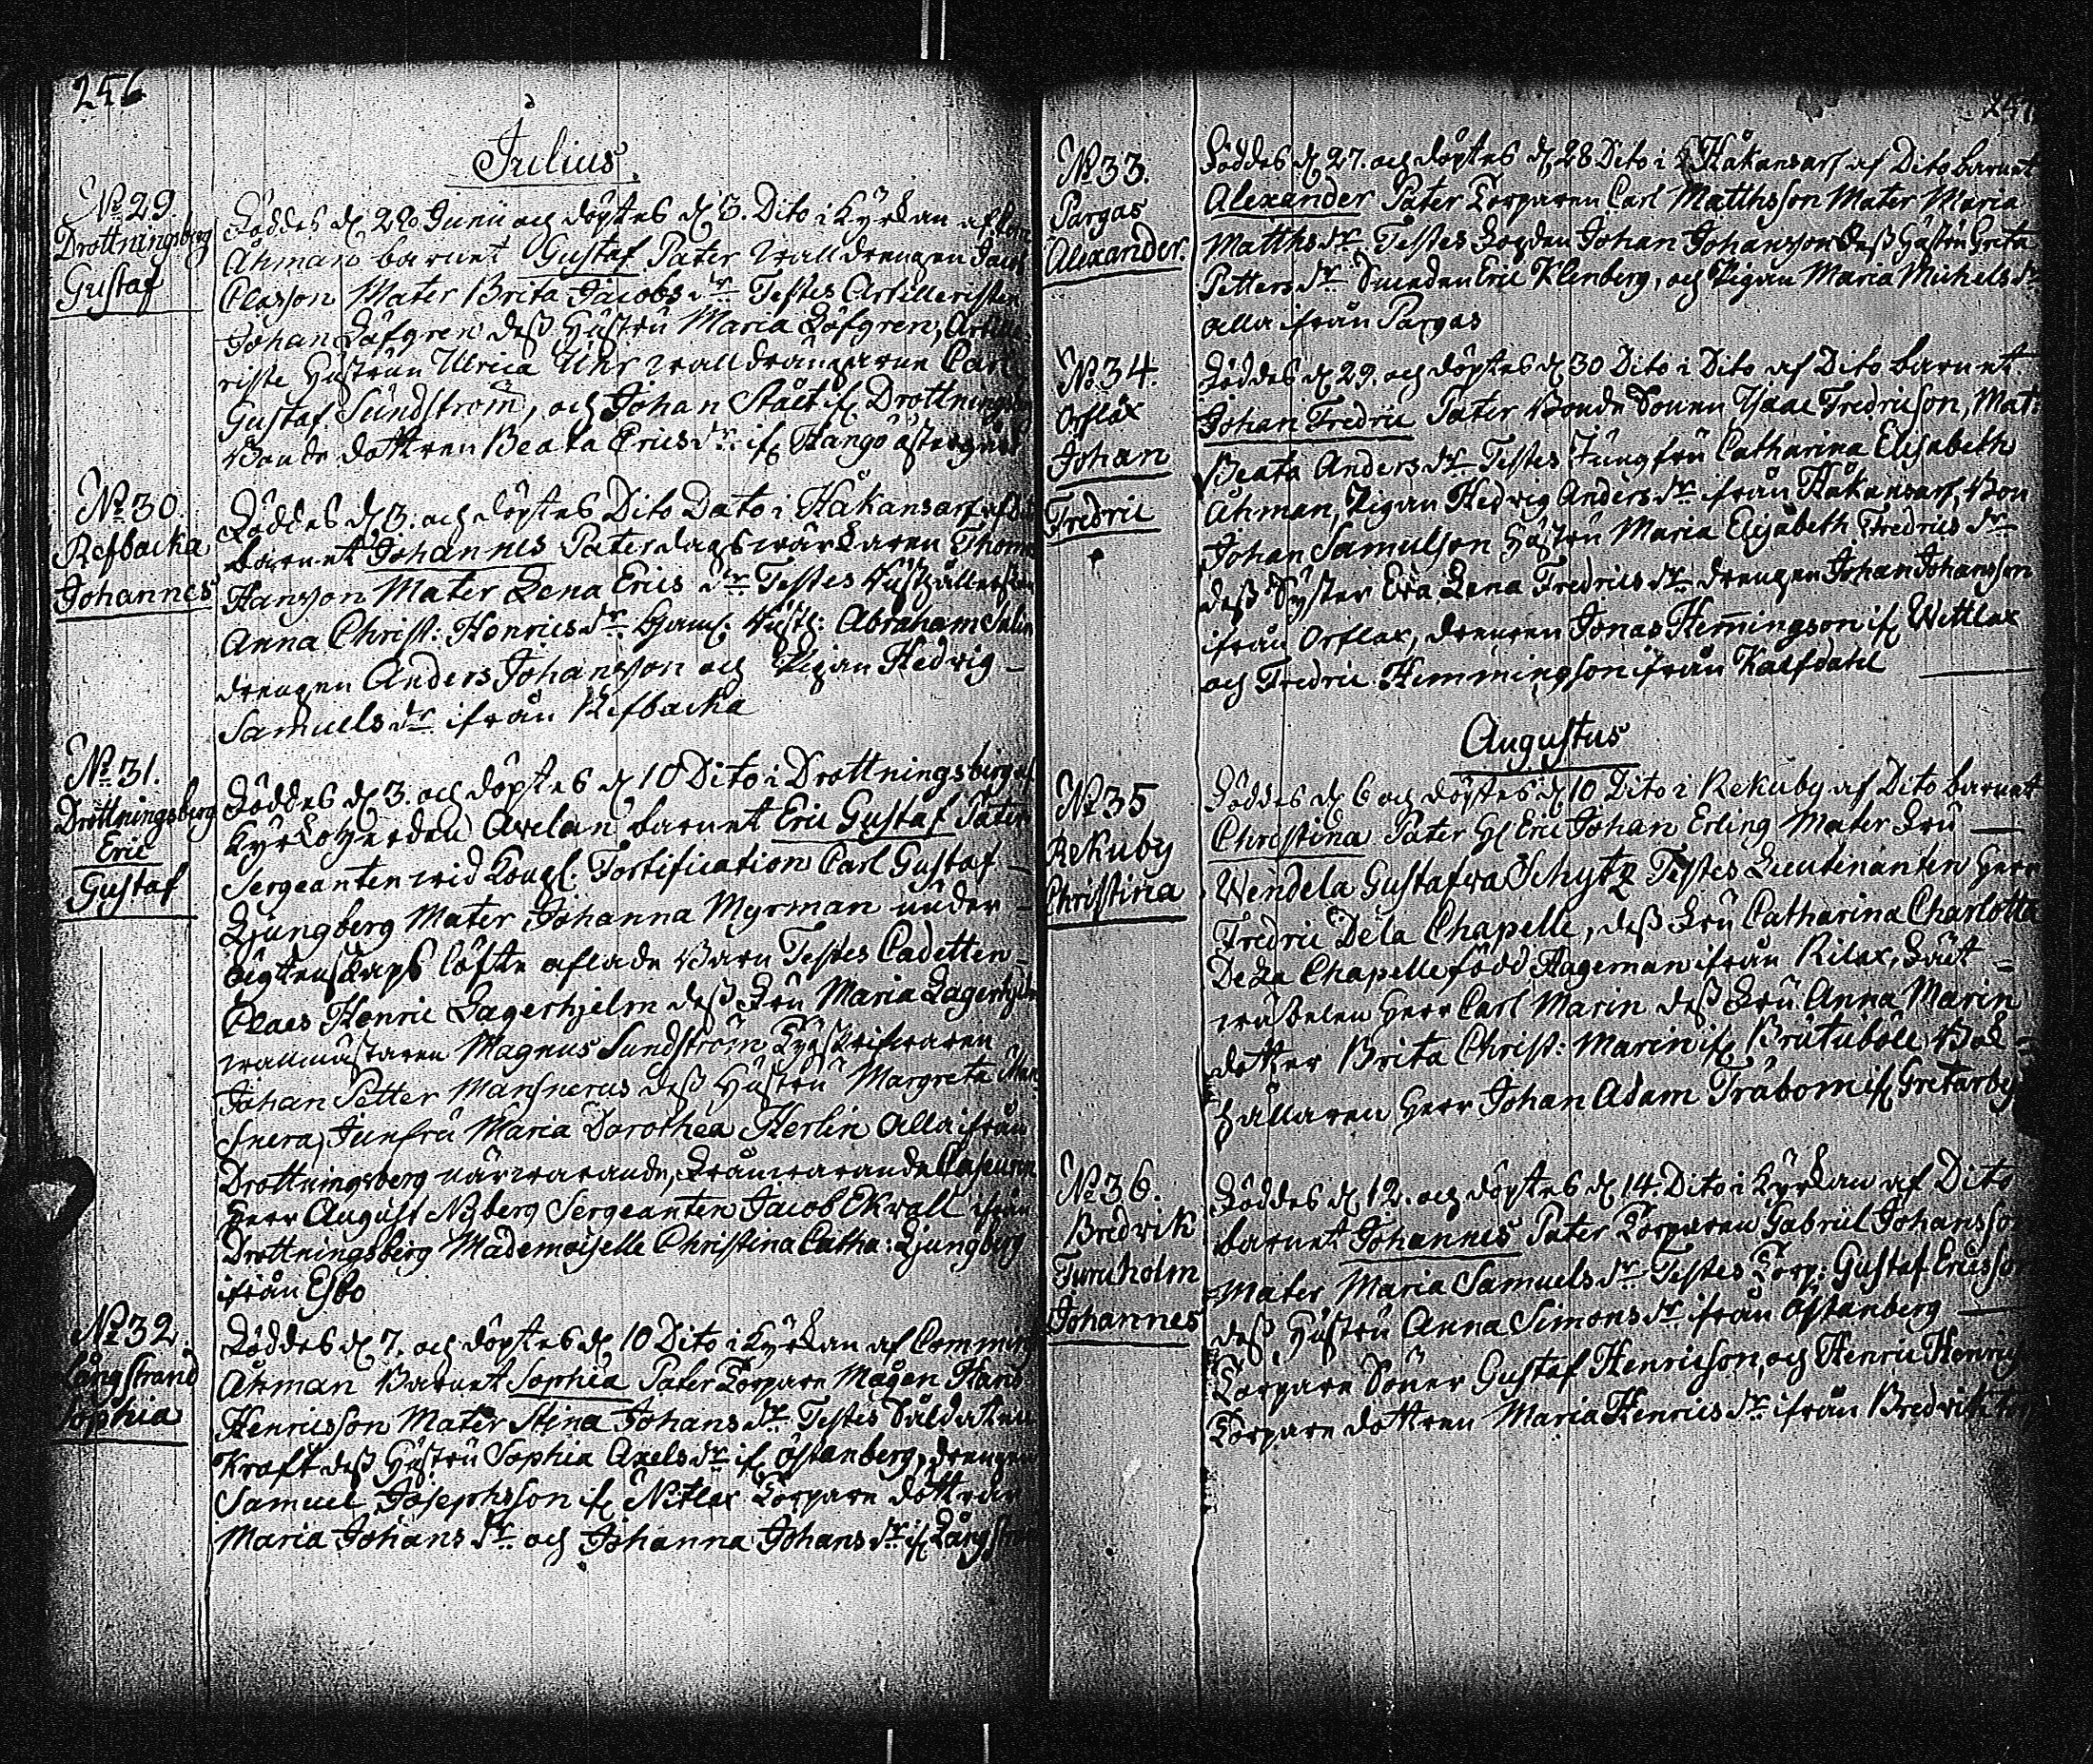 256
Julius
No 29.
Drottningsberg
Gustaf
Föddes d. 22 Junii och döptes d. 3. Dito i Kyrkan af Com
Åhman barnet Gustaf Pater walldrengen Jacob
Classon Mater Brita Jacobs dr Testes Artilleristen
Johan Löfgren deß Hustru Maria Löfgren, Artille
riste Hustrun Ulrica Uhr walldrängarne Carl
Gustaf Sundström, och Johan Stålt if. Drottningsberg
Bonde dottren Beata Erics dr if. Hangö
No 30.
Refbacka
Johannes
Föddes d. 3. och döptes Dito Dato i Håkansarf af
barnet Johannes Pater dagswärkaren Thomas
Hansson Mater Lena Erics dr Testes
Anna Christ: Henrics dr Abraham
drengen Anders Johansson och Pigan Hedvig
Samuels dr ifrån Refbacka
No 31.
Drottningsberg
Eric
Gustaf
Föddes d. 3. och döptes d. 10 Dito i Drottningsberg af
Kyrkoherden Avelan barnet Eric Gustaf Pater
Sergeanten wid Kongl. Fortification Carl Gustaf
Ljungberg Mater Johanna Myrman under
ägtenskaps löfte aflade Barn Testes Cadetten
Claes Henric Lagerhjelm deß Fru Maria Lagerhjelm
wallmästaren Magnus Sundström
Johan Petter Marsnerus deß Hustru Margreta Mar
snera, Junfru Maria Dorothea Herlin alla ifrån
Drottningsberg närwarande, frånwarande
Herr August Nyberg Sergeanten Jacob Ekwall ifrån
Drottningsberg Mademoiselle Christina Catha: Ljungberg
ifrån Esbo
No 32.
Långstrand
Sophia
Föddes d. 7. och döptes d. 10 Dito i Kyrkan af Comminist
Åhman Barnet Sophia Pater Torpare Mågen Hans
Henricsson Mater Stina Johans dr Testes Såldaten
Kraft deß Hustru Sophia Axels dr if. Östanberg, drengen
Samuel Josephsson if. Nitlax Torpare döttrar
Maria Johans dr och Johanna Johans dr if. Långstrand
257
No 33.
Pargas
Alexander.
Föddes d. 27. och döptes d. 28 Dito i Håkansarf af Dito barnet
Alexander Pater Torparen Carl Matthsson Mater Maria
Matths dr Testes Johan Johansson deß Hustru Greta
Petters dr Smeden Eric Klenberg, och Pigan Maria Michels dr
alla ifrån Pargas
No 34.
Orslax
Johan
Fredric
Föddes d. 29. och döptes d. 30 Dito i Dito af Dito barnet
Johan Fredric Pater Bonde Sonen Isaac Fredricson, Mat:
Beata Anders dr Testes Jungfru Catharina Elisabeth
Åhman, Pigan Hedvig Anders dr ifrån Håkansarf, Bon
Johan Samulson Hustru Maria Elisabeth Fredrics dr
deß Syster Eva Lena Fredrics dr drengen Johan Johansson
ifrån Orslax, drengen Jonas Hemingson if. Wittlax
och Fredric Hemmingson ifrån Kalfdahl
Augustus
No 35
Rekuby
Christina
Föddes d. 6 och döptes d. 10 Dito i Rekuby af Dito barnet
Christina Pater Hr Eric Johan Erling Mater Fru
Wendela Gustafwa Schytz Testes Lieutinanten Herr
Fredric Dela Chapelle, deß Fru Catharina Charlotta
De La Chapelle född Hageman ifrån Rilax,
Herr Carl Marin deß Fru Anna Marin
dotter Brita Christ: Marin if. Brutuböle, Bok
hållaren Herr Johan Adam Träbom if. Gretarby
No 36.
Bredvik
Furuholm
Johannes
Föddes d. 12. och döptes d. 14. Dito i Kyrkan af Dito
barnet Johannes Pater Torparen Gabriel Johansson
Mater Maria Samuels dr Testes Torp: Gustaf Ericsson
deß Hustru Anna Simons dr ifrån Östanberg
Torpare Söner Gustaf Henricson, och Henric Henrics
Torpare dottren Maria Henrics dr ifrån Bredvik